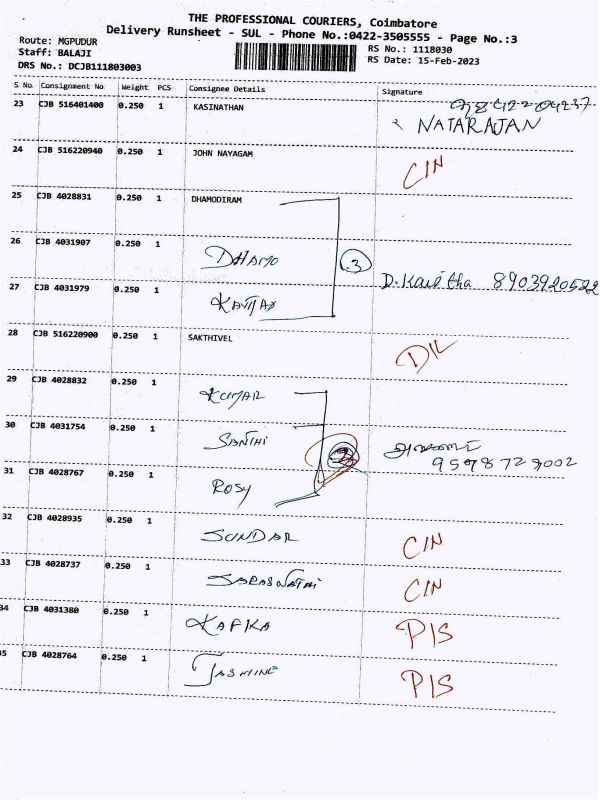 THE PROFESSIONAL COURIERS, Coimbatore
Delivery Runsheet - SUL - Phone No.:0422-3505555 - Page No.:3
Route: MGPUDUR
Staff: BALAJI
DRS No.: DCJB111803003
RS No.: 1118030
RS Date: 15-Feb-2023
S No Consignment No Weight PCS Consignee Details Signature
23 CJB 516401400 0.250 1 KASINATHAN
NATARAJAN
24 CJB 516220940 0.250 1 JOHN NAYAGAM CIN
25 CJB 4028831 0.250 1 DHAMODIRAM
26 CJB 4031907 0.250 1 DHAMO 3 D. Kavitha 8903920522
27 CJB 4031979 0.250 1
28 CJB 516220900 0.250 1 SAKTHIVEL DIL
29 CJB 4028832 0.250 1 KUMAR
30 CJB 4031754 0.250 1 SANTHI
9598729002
31 CJB 4028767 0.250 1 ROSY
32 CJB 4028935 0.250 1 SUNDAR CIN
33 CJB 4028737 0.250 1 SARASWATHI CIN
34 CJB 4031380 0.250 1 KAPIKA PIS
35 CJB 4028764 0.250 1 JASMINE PIS